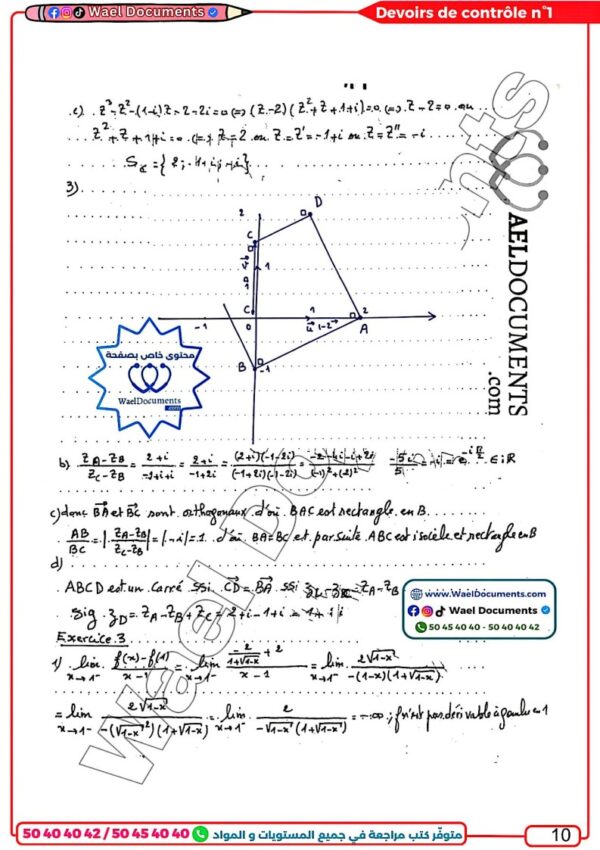 Wael Documents
Devoirs de contrôle n°1
c) Z³-Z²-(1-i)Z-2-2i=0 ⇔ (Z-2)(Z²+Z+1+i)=0 ⇔ Z-2=0 ou
Z²+Z+1+i=0 ⇔ Z=2 ou Z=Z'=-1+i ou Z=Z''=-i
S_ℂ={2;-1+i;-i}
3)
D
2
C
1
C
-1
0
1
2
A
B
-1
AELDOCUMENTS
.com
محتوى خاص بصفحة
WaelDocuments
.com
b) (Z_A-Z_B)/(Z_C-Z_B) = (2+i)/(-1+i+i) = (2+i)/(-1+2i) = (2+i)(-1-2i)/((-1+2i)(-1-2i)) = (-2-4i-i+2)/((-1)²+(2)²) = -5i/5 = -i = e^(-iπ/2) ∈ iℝ
c) donc BA et BC sont orthogonaux d'où BAC est rectangle en B
AB/BC = |(Z_A-Z_B)/(Z_C-Z_B)| = |-i| = 1 d'où BA=BC et par suite ABC est isocèle et rectangle en B
d)
ABCD est un carré ssi CD=BA ssi Z_A-Z_B
sig z_D = Z_A-Z_B+Z_C = 2+i-1+i = 1+
www.WaelDocuments.com
Wael Documents
50 45 40 40 - 50 40 40 42
Exercice 3
1) lim x→1⁻ (f(x)-f(1))/(x-1) = lim x→1⁻ (-2/(1+√(1-x)) + 2)/(x-1) = lim x→1⁻ 2√(1-x)/(-(1-x)(1+√(1-x)))
= lim x→1⁻ 2√(1-x)/(-(√(1-x))²(1+√(1-x))) = lim x→1⁻ 2/(-√(1-x)(1+√(1-x))) = -∞ ; f n'est pas dérivable à gauche en 1
Wael Do
50 40 40 42 / 50 45 40 40 متوفّر كتب مراجعة في جميع المستويات و المواد
10